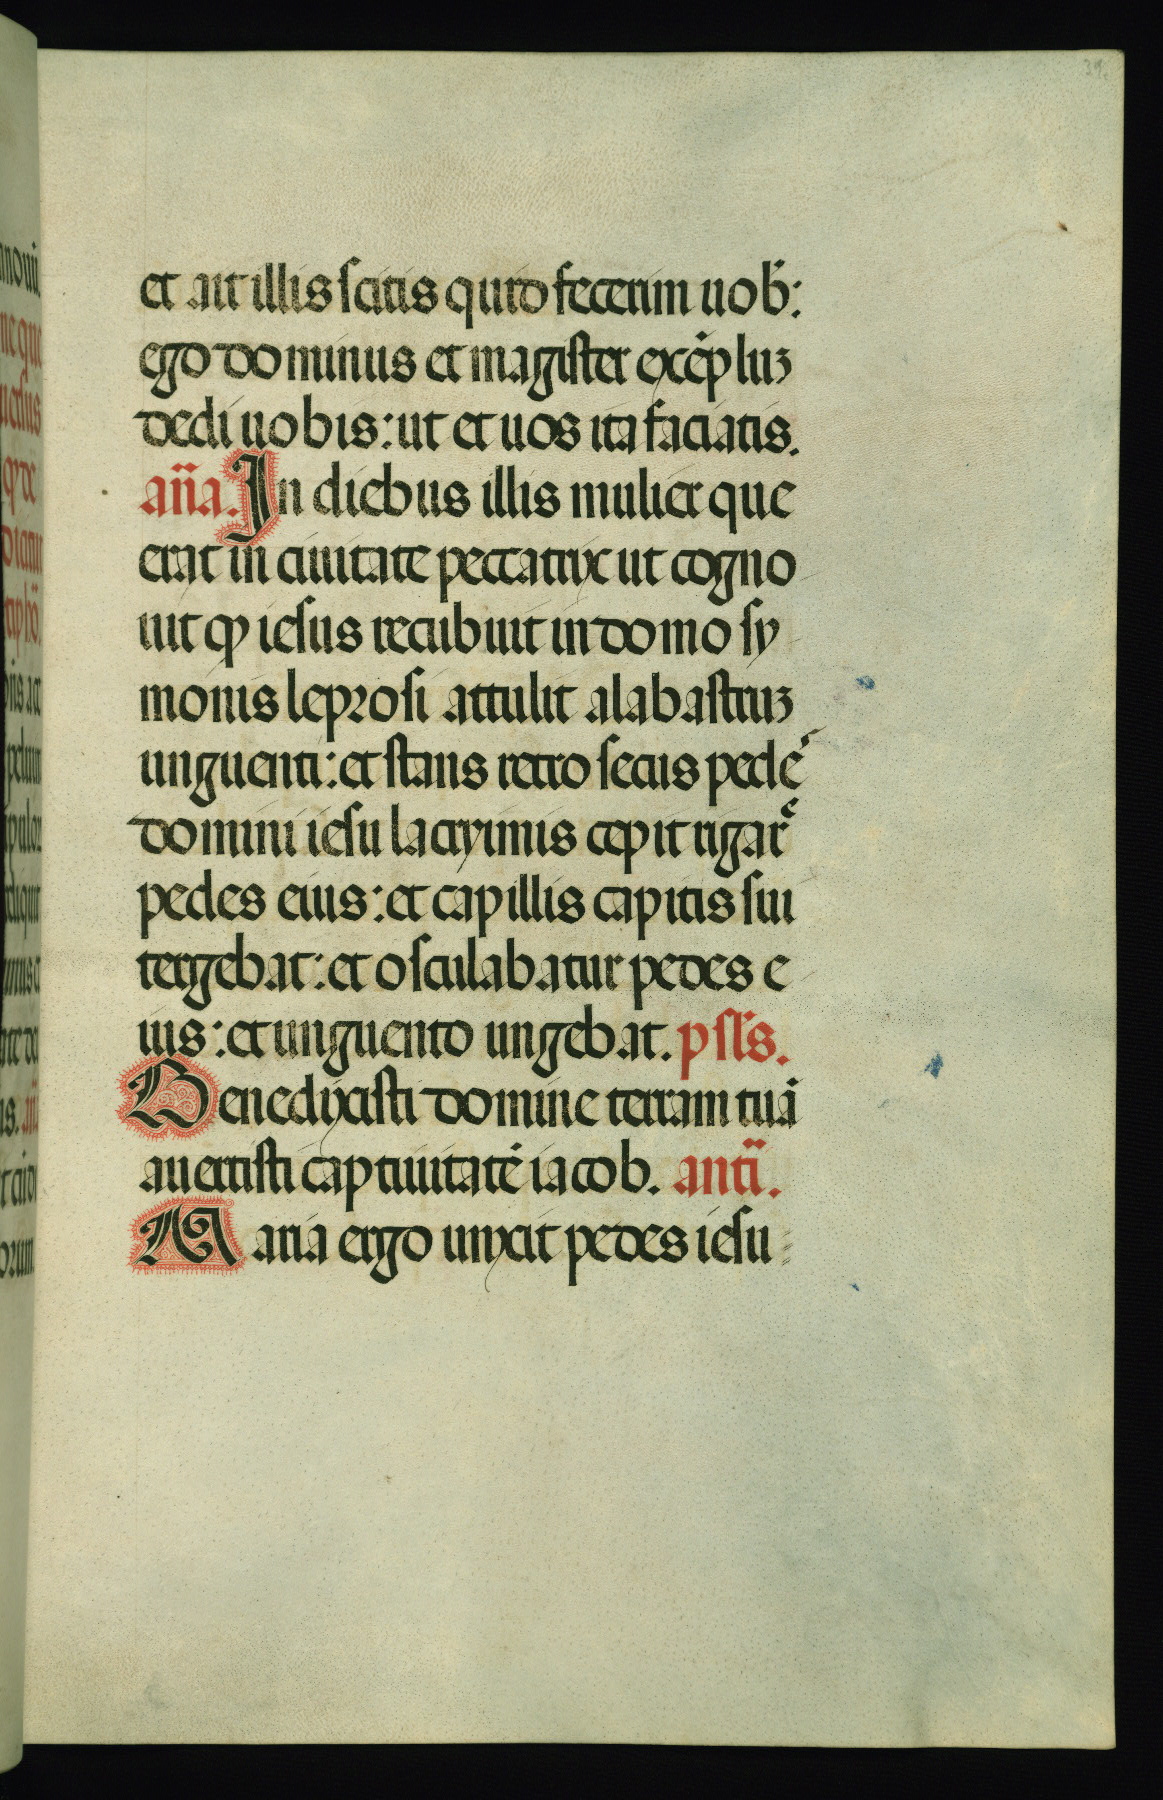 et ait illis scitis quid fecerim uob̃:
ego dominus et magister exẽpluꝫ
dedi uobis: ut et uos ita faciatis.
an̄a. In diebus illis mulier que
erat in ciuitate peccatrix ut cogno
uit ꝙ iesus recubuit in domo sy
monis leprosi attulit alabastruꝫ
unguenti: et stans retro secus pedeˢ
domini iesu lacrymis cepit rigarᵉ
pedes eius: et capillis capitis sui
tergebat: et osculabatur pedes e
ius: et unguento ungebat. psl̃s.
Benedixisti domine terram tuã
auertisti captiuitatẽ iacob. antĩ.
Maria ergo unxit pedes iesu